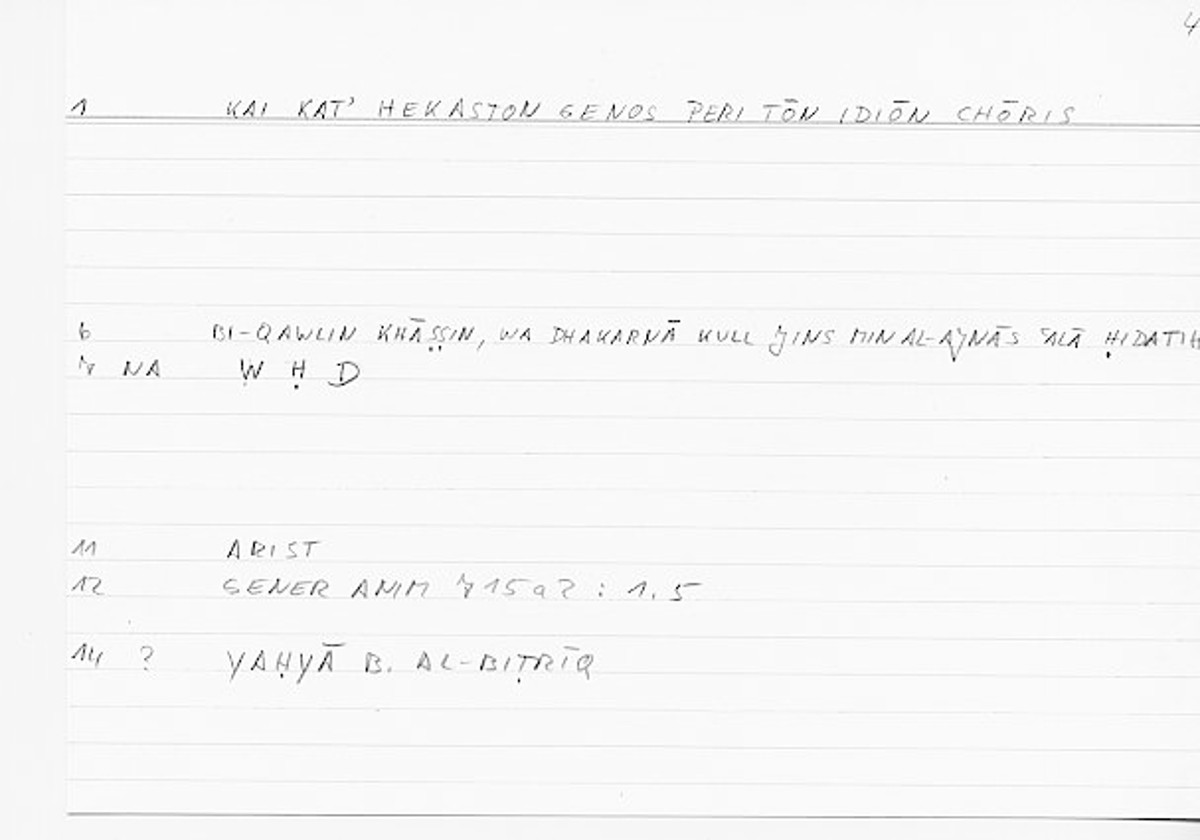 4
1 KAI KAT' HEKASTON GENOS PERI TŌN IDIŌN CHŌRIS
6 BI-QAWLIN KHĀṢṢIN, WA DHAKARNĀ KULL JINS MIN AL-AJNĀS ʿALĀ ḤIDATIH
7 NA W Ḥ D
11 ARIST
12 GENER ANIM 715a2 : 1.5
14 ? YAḤYĀ B. AL-BIṬRĪQ